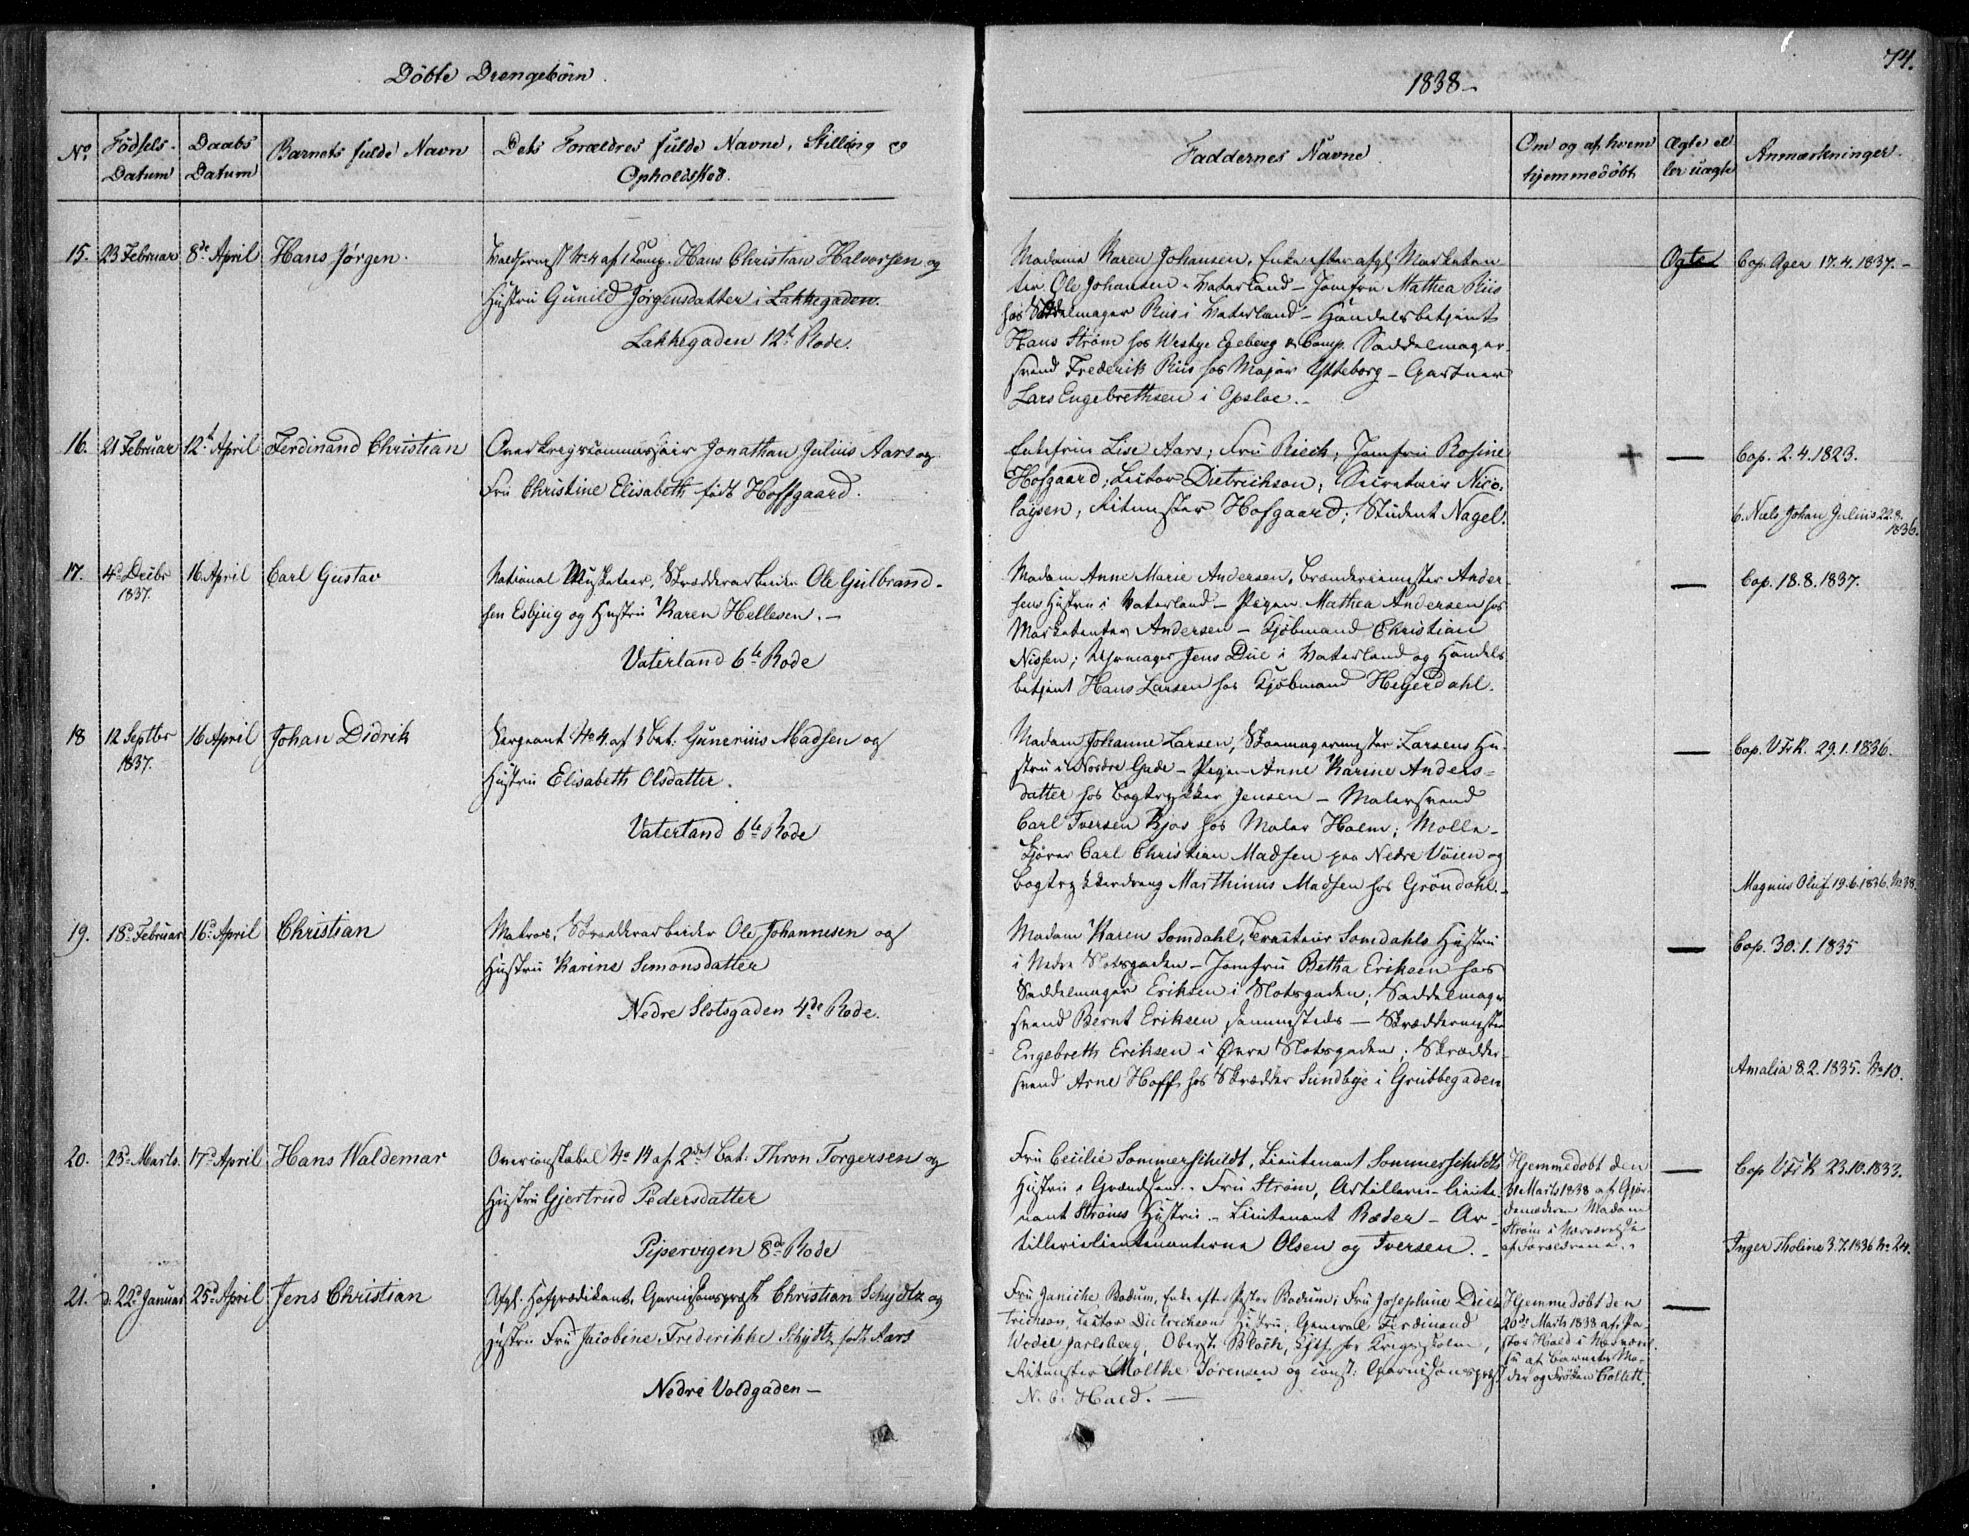 Döbte Drengebörn.
1838
74.
No.
Födsels-
Datum
Daabs
Datum
Barnets fulde Navn
Dets Forældres fulde Navne, Stilling og
Opholdssted.
Faddernes Navne.
Om og af hvem
hjemmedöbt
Ægte el
ler uægte
Anmærkninger.
15. 23 Februar 8de April Hans Jörgen.
No 4 af 1 Comp. Hans Christian Halvorsen og
Hustru Gunild Jörgensdatter i Lakkegaden.
Lakkegaden 12t Rode.
Madame Karen Johansen, Enke efter afg. Marketen
ter Ole Johansen i Vaterland - Jomfru Mathea Riis
hos Saddelmager Riis i Vaterland - Handelsbetjent
Hans Ström hos Westye Egeberg & Comp. Saddelmager
svend Frederik Riis hos Major Ytteborg - Gartner
Lars Engebrethsen i Opsloe.
Ægte
Cop. Ager 17.4.1837.-
16. 21 Februar 12t April Ferdinand Christian
Overkrigscommissair Jonathan Julius Aars og
Fru Christine Elisabeth född Hoffgaard.
Enkefrue Lise Aars; Fru Riech; Jomfru Rosine
Hofgaard; Lector Dietrichson; Secretair Nico-
laysen, Ritmester Hofgaard; Student Nagel.
+
—
Cop. 2.4.1823.
b. Niels Johan Julius 22.8.
1836.
17. 4d Decbr
1837.
16 April Carl Gustav
National Musketeer, Skrædderarbeider Ole Gulbrand-
sen Esbjug og Hustru Karen Hellesen. -
Vaterland 6te Rode
Madam Anne Marie Andersen, Brænderiemester Ander-
sens Hustru i Vaterland - Pigen Mathea Andersen hos
Marketenter Andersen - Kjöbmand Christian
Nissen; Uhrmager Jens Due i Vaterland og Handels
betjent Hans Larsen hos Kjöbmand Heyerdahl.
—
Cop. 18.8.1837.
18 12 Septbr
1837.
16 April Johan Didrik
Sergeant No 4 af 5 Bat. Gunerius Madsen og
Hustru Elisabeth Olsdatter.
Vaterland 6te Rode
Madam Johanne Larsen, Skomagermester Larsens Hu-
stru i Nordre Gade - Pigen Anne Karine Anders-
datter hos Bogtrykker Jensen - Malersvend
Carl Iversen Kjos hos Maler Holm; Mölle-
kjörer Carl Christian Madsen paa Nedre Vöien og
Bogtrykkerdreng Marthinus Madsen hos Gröndahl. -
—
Cop. V Fr K. 29.1.1836.
Magnus Oluf 19.6.1836. No 38.
19. 18d Februar 16d April Christian
Matros, Skrædderarbeider Ole Johannesen og
Hustru Karine Simonsdatter
Nedre Slotsgaden 4de Rode.
Madam Karen Somdahl, Traiteur Somdahls Hustru
i Nedre Slotsgaden - Jomfru Betha Eriksen hos
Saddelmager Eriksen i Slotsgaden; Saddelmager
svend Bernt Eriksen sammesteds - Skræddermester
Engebreth Eriksen i Övre Slotsgaden; Skrædder-
svend Arne Hoff hos Skrædder Sundbye i Grubbegaden
—
Cop. 30.1.1835
Amalia 8.2.1835. No 10.
20. 23d Marts. 17d April Hans Waldemar
Overconstabel No 14 af 2det Bat. Thron Torgersen og
Hustru Gjertrud Pedersdatter
Pipervigen 8de Rode
Fru Cecilie Sommerschildt, Lieutenant Sommerschildts
Hustru i Grændsen. - Fru Ström, Artillerie-Lieute-
nant Ströms Hustru. - Lieutenant Ræder - Ar-
tillerielieutenanterne Olsen og Iversen. -
Hjemmedöbt den
31 Marts 1838 af Gjor-
demoderen Madam
Ström i Nærværelse
af Forældrene. -
—
Cop V Fr K 23.10.1833.
Inger Tholine 3.7.1836 No 24.
21. d. 22d Januar 25d April Jens Christian
Afg. Hofprædikant, Garnisonspræst Christian Schydtz og
Hustru Fru Jacobine Frederikke Schydtz född Aars
Nedre Voldgaden -
Fru Janiche Bodum, Enke efter Pastor Bodum; Fru Josephine Diet-
trichson, Lector Dietrichsons Hustru; General Ferdinand
Wedel Jarlsberg, Oberst Bloch, Chef for Krigsskolen,
Ritmester Moltke Sörensen og const. Garnisonspræst
N. B. Hald. -
Hjemmedöbt den
20de Marts 1838 af Pa-
stor Hald i Nærværel-
se af Barnets Mo-
der og Fröken Collett.
—